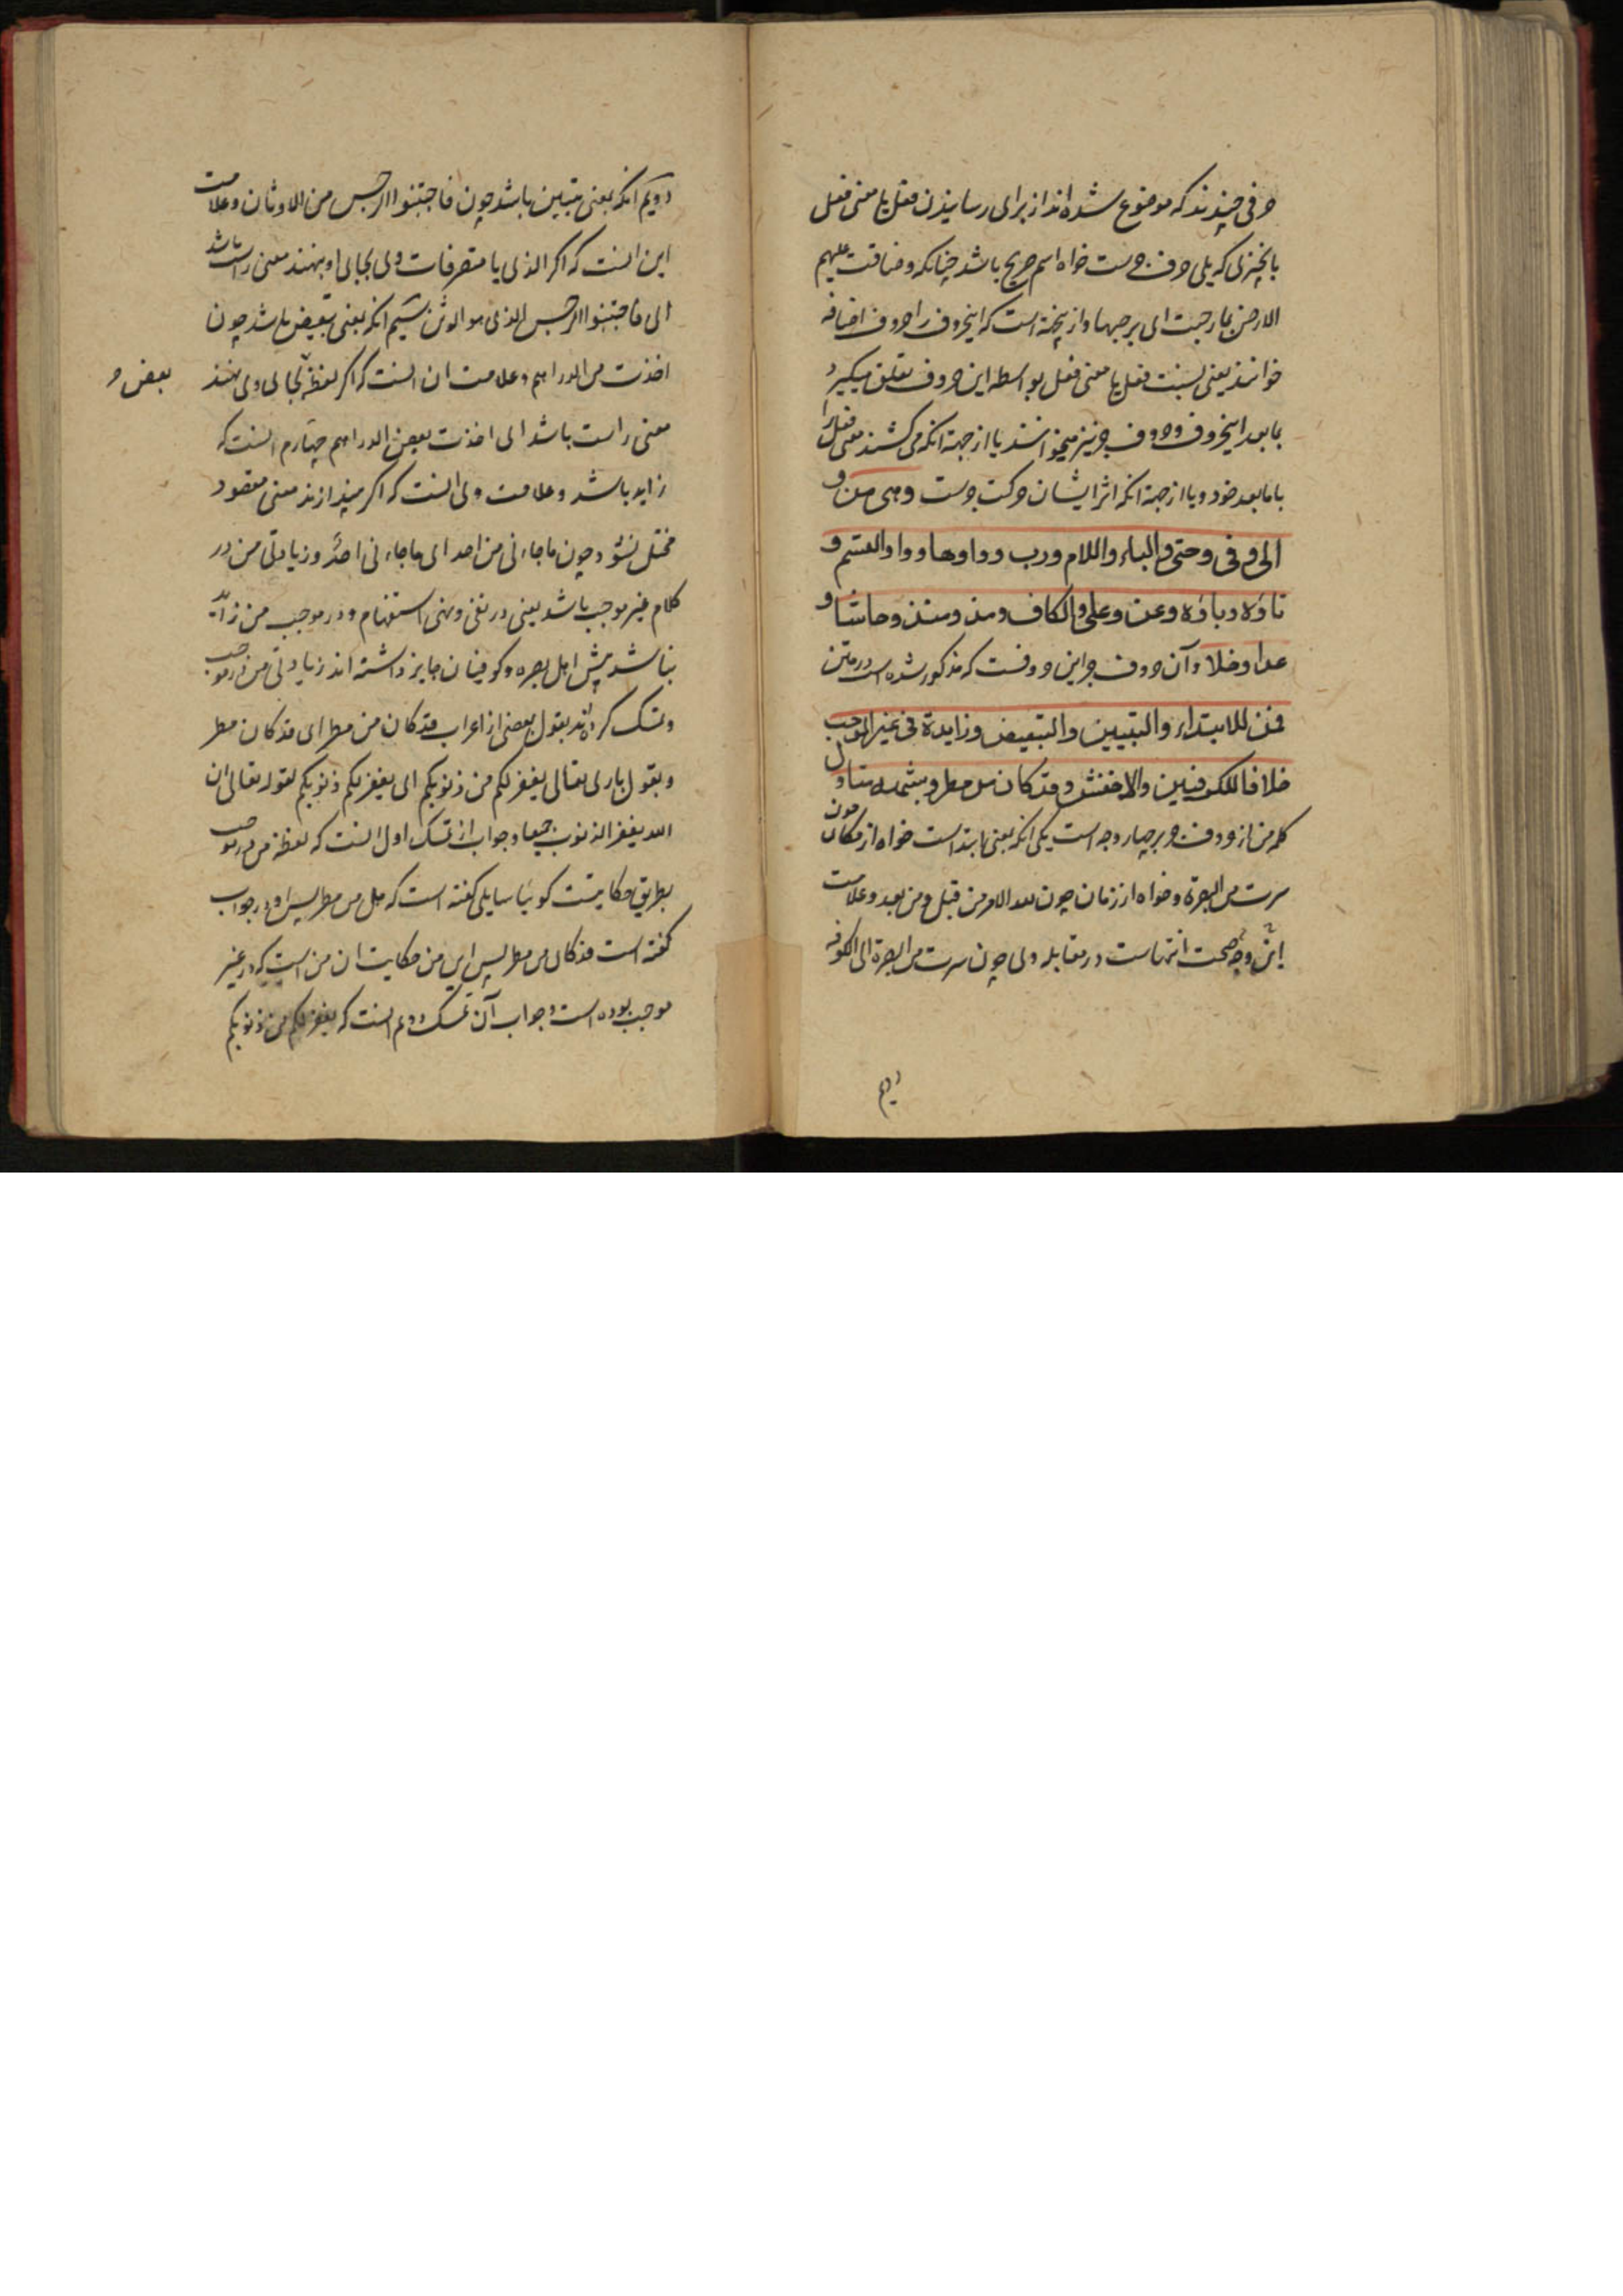 حرفی چندند که موضوع شده‌اند از برای رسانیدن فعل یا معنی فعل
بانچیزی که یلی حرف جرست خواه اسم صریح باشد چنانکه وضاقت علیهم
الارض بما رحبت ای برحبها و از ینجهة است که اینحروف را حروف اضافه
خوانند یعنی نسبت فعل یا معنی فعل بواسطه این حروف تعلق میگیرد
بمابعد اینحروف و حروف جر نیز میخوانند یا از جهة انکه می کشند معنی فعل را
بامابعد خود و یا از جهة انکه اثر ایشان حرکت جرست وهی من و
الی و فی و حتی و الباء واللام ورب وواوها وواو القسم و
تاؤه وباؤه وعن وعلی والکاف ومذ ومنذ وحاشا و
عدا وخلا و آن حروف جر این حروفست که مذکور شده است در متن
فمن للابتداء والتبیین والتبعیض وزایدة فی غیر الموجب
خلافا للکوفیین والاخفش وقد کان من مطر وشبهه متاول
کلمه من از حروف جر بر چهار وجه است یکی انکه بمعنی ابتداست خواه از مکان چون
سرت من البصرة و خواه از زمان چون لله الامر من قبل ومن بعد و علامت
این وجه صحت انتهاست در مقابله وی چون سرت من البصرة الی الکوفه
دویم
دویم انکه بمعنی تبیین باشد چون فاجتنبوا الرجس من الاوثان و علامت
این انست که اکر الذی یا متصرفات وی بجای او بنهند معنی راست باشد
ای فاجتنبوا الرجس الذی هو الوثن سیم انکه بمعنی تبعیض باشد چون
اخذت من الدراهم و علامت ان انست که اکر لفظ بجای وی نهند
بعض و
معنی راست باشد ای اخذت بعض الدراهم چهارم انست که
زایده باشد و علامت وی انست که اکر بیندازند معنی مقصود
مختل نشود چون ماجاءنی من احد ای ماجاءنی احدٌ و زیادتی من در
کلام غیر موجب باشد یعنی در نفی و نهی استفهام و در موجب من زاید
نباشد پیش اهل بصره و کوفیان جایز داشته اند زیادتی من در موجب
و تمسک کرده اند بقول بعضی از اعراب قد کان من مطر ای قد کان مطر
و بقول باری تعالی یغفر لکم من ذنوبکم ای یغفر لکم ذنوبکم لقوله تعالی ان
الله یغفر الذنوب جمیعا و جواب از تمسک اول انست که لفظ من در موجب
بطریق حکایتست کوئیا سایلی کفته است که هل من مطر پس او در جواب
کفته است قد کان من مطر پس این من حکایت ان من است که در غیر
موجب بوده است و جواب آن تمسک دویم انست که یغفر لکم من ذنوبکم